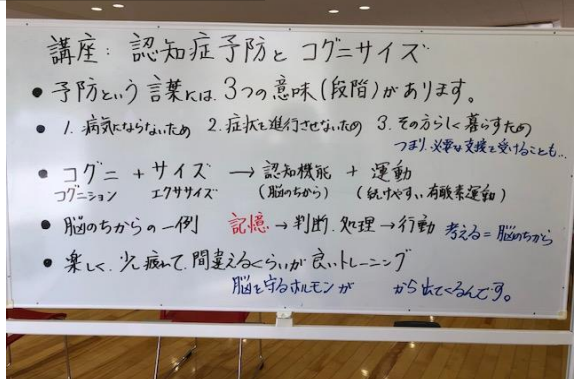 講座: 認知症予防と コグニサイズ
● 予防という言葉には、3つの意味(段階)があります。
● 1. 病気にならないため 2. 症状を進行させないため 3. その方らしく暮らすため
つまり、必要な支援を受けることも…
● コグニ + サイズ → 認知機能 + 運動
コグニション エクササイズ (脳のちから) (続けやすい有酸素運動)
● 脳のちからの一例 記憶 → 判断.処理 → 行動 考える=脳のちから
● 楽しく.少し疲れて.間違えるくらいが良いトレーニング
脳を守るホルモンが から出てくるんです。